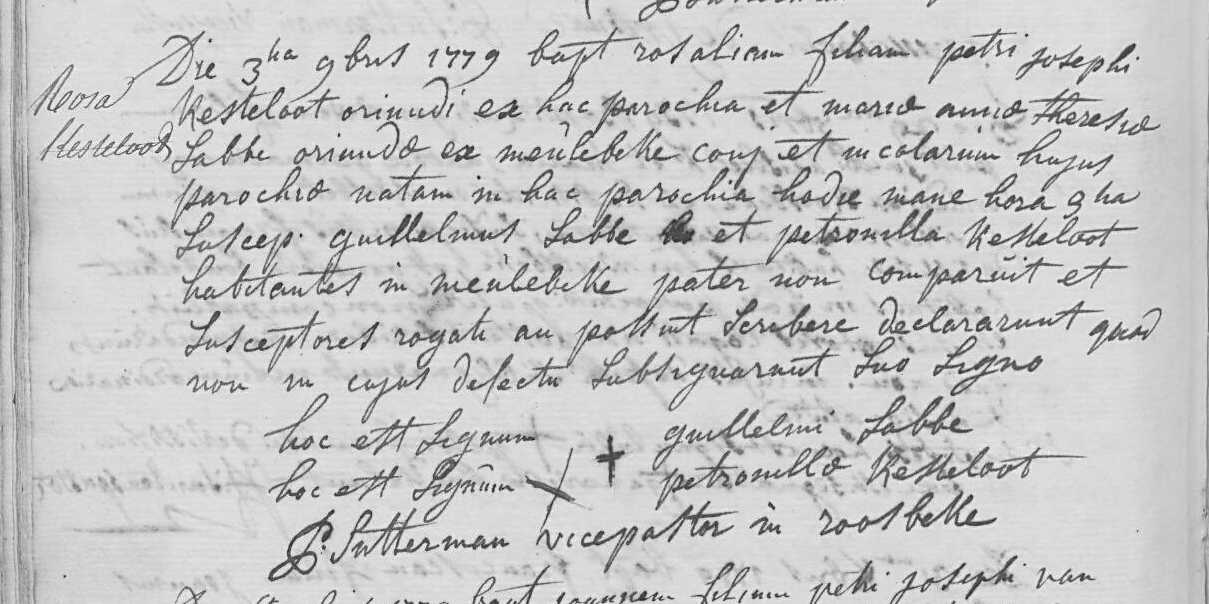 Rosa
Kesteloot
Die 3ha 9bris 1779 bapt rosaliam filiam petri josephi
Kesteloot oriundi ex hac parochia et mariæ annæ theresiæ
Labbe oriundæ ex meulebeke conj et incolarum hujus
parochiæ natam in hac parochia hodie mane hora 3ha
Suscep. guillelmus Labbe et petronilla Kesteloot
habitantes in meulebeke pater non comparuit et
Susceptores rogati an possint scribere declararunt quod
non in cujus defectu subsignarunt suo signo
hoc est signum + guillelmi Labbe
hoc est signum + petronillæ Kesteloot
P. Sutterman vicepastor in roosbeke
bapt joannem filium petri josephi van